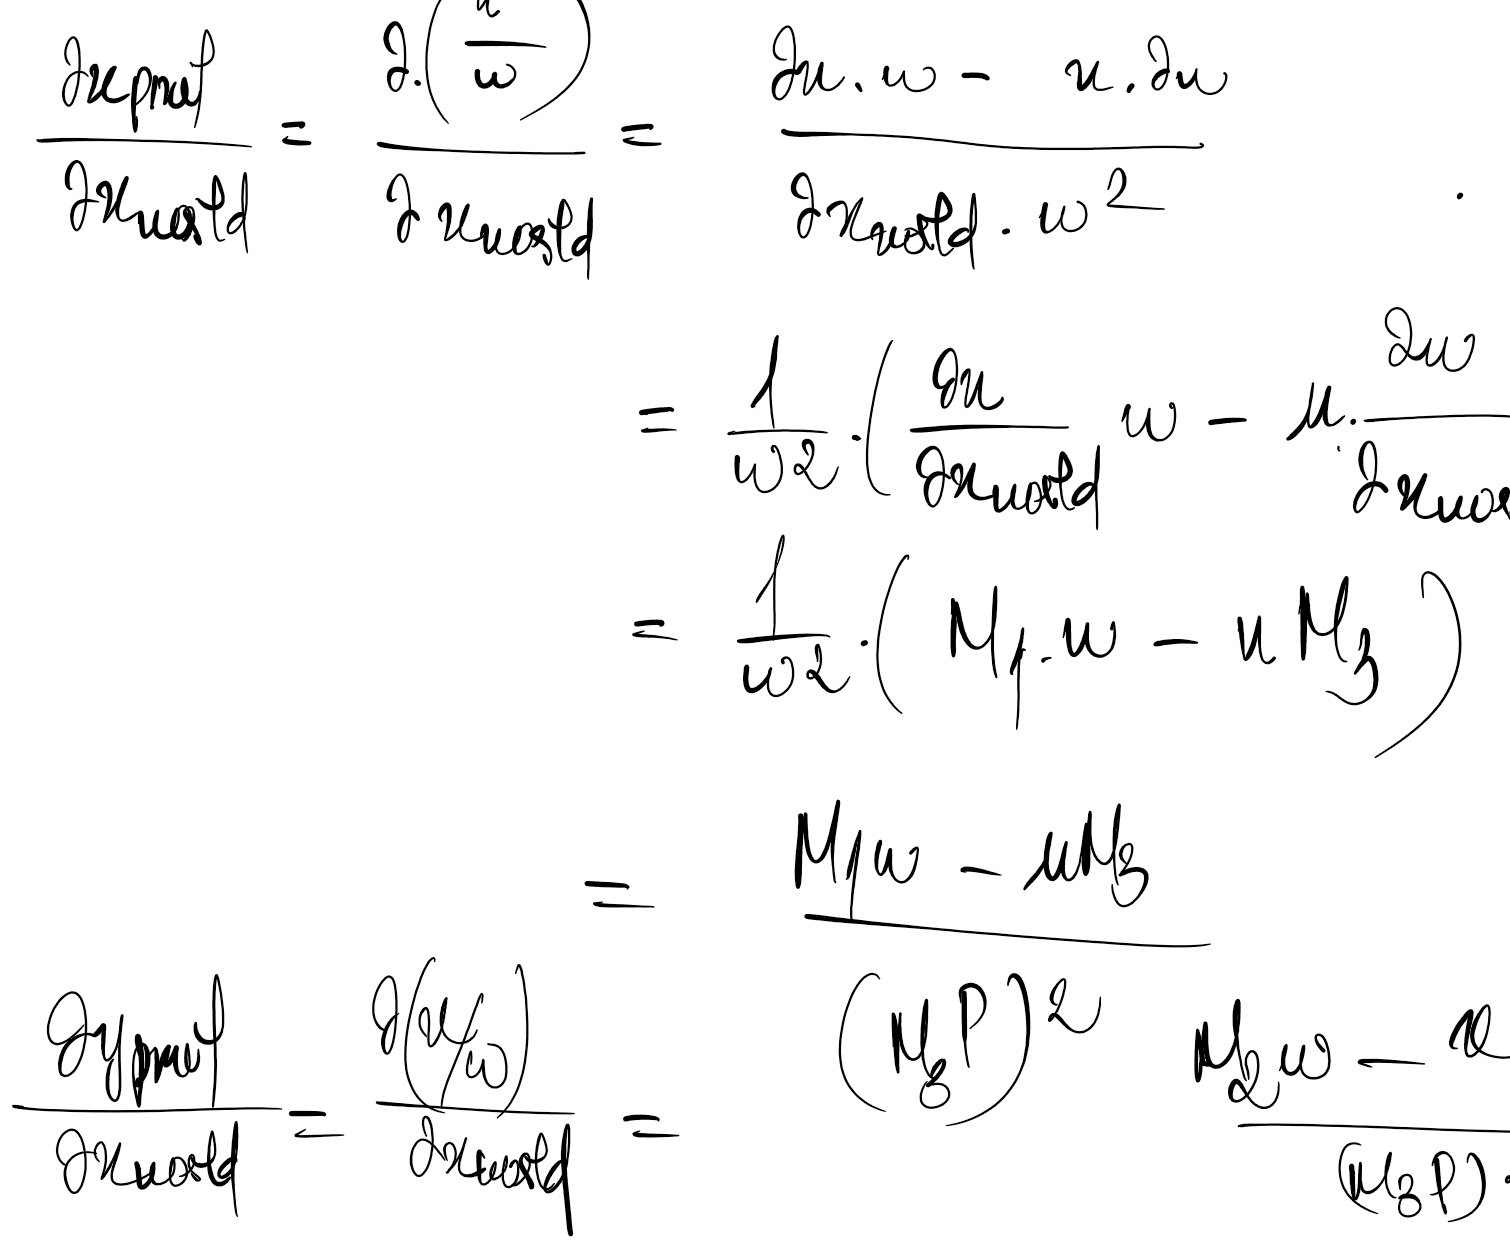 ∂x_pixel / ∂x_world = ∂.(u/w) / ∂x_world = (∂u.w - u.∂w) / (∂x_world . w²)
= 1/w² . (∂u/∂x_world w - u. ∂w/∂x_wor
= 1/w² . (M₁.w - u M₃)
= (M₁w - uM₃) / (M₃P)²
∂y_pixel / ∂x_world = ∂(v/w) / ∂x_world = (M₂w - v / (M₃P).